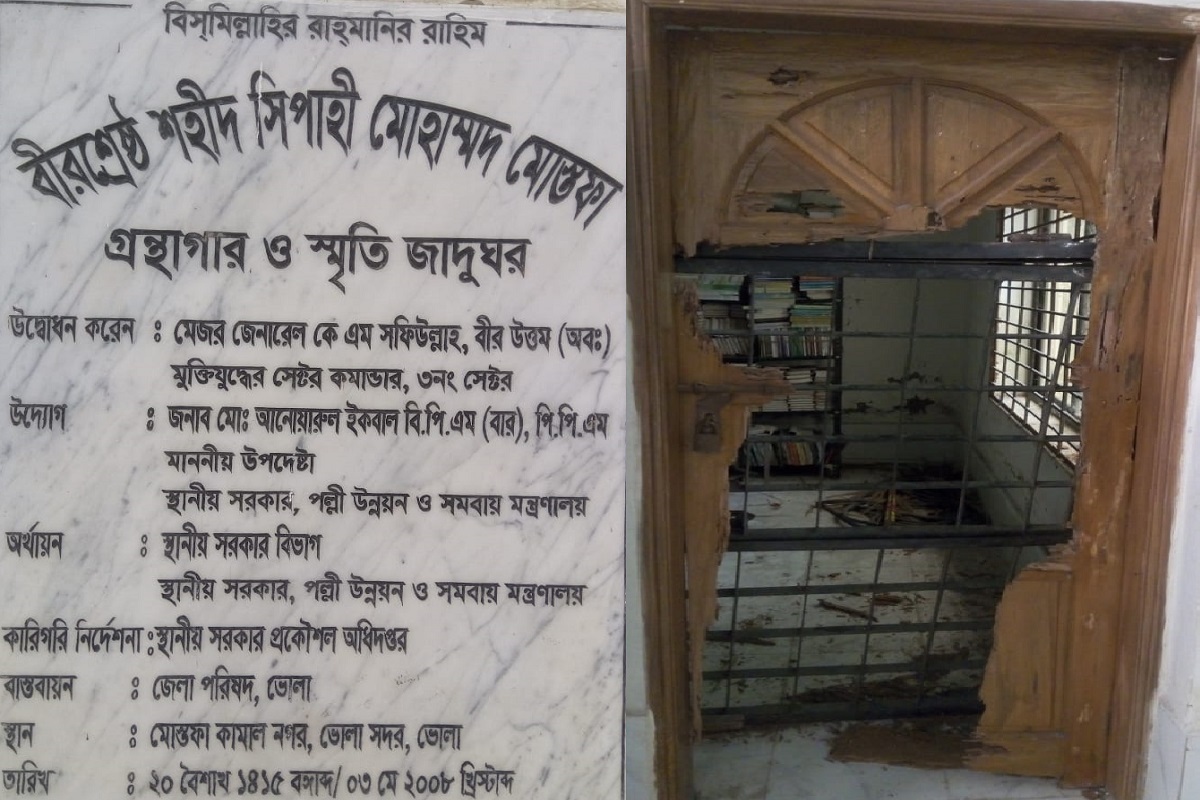 বিস্‌মিল্লাহির রাহ্‌মানির রাহিম
বীরশ্রেষ্ঠ শহীদ সিপাহী মোহাম্মদ মোস্তফা
গ্রন্থাগার ও স্মৃতি জাদুঘর
উদ্বোধন করেন : মেজর জেনারেল কে এম সফিউল্লাহ, বীর উত্তম (অবঃ)
মুক্তিযুদ্ধের সেক্টর কমান্ডার, ৩নং সেক্টর
উদ্যোগ : জনাব মোঃ আনোয়ারুল ইকবাল বি.পি.এম (বার), পি.পি.এম
মাননীয় উপদেষ্টা
স্থানীয় সরকার, পল্লী উন্নয়ন ও সমবায় মন্ত্রণালয়
অর্থায়ন : স্থানীয় সরকার বিভাগ
স্থানীয় সরকার, পল্লী উন্নয়ন ও সমবায় মন্ত্রণালয়
কারিগরি নির্দেশনা : স্থানীয় সরকার প্রকৌশল অধিদপ্তর
বাস্তবায়ন : জেলা পরিষদ, ভোলা
স্থান : মোস্তফা কামাল নগর, ভোলা সদর, ভোলা
তারিখ : ২০ বৈশাখ ১৪১৫ বঙ্গাব্দ/ ০৩ মে ২০০৮ খ্রিস্টাব্দ